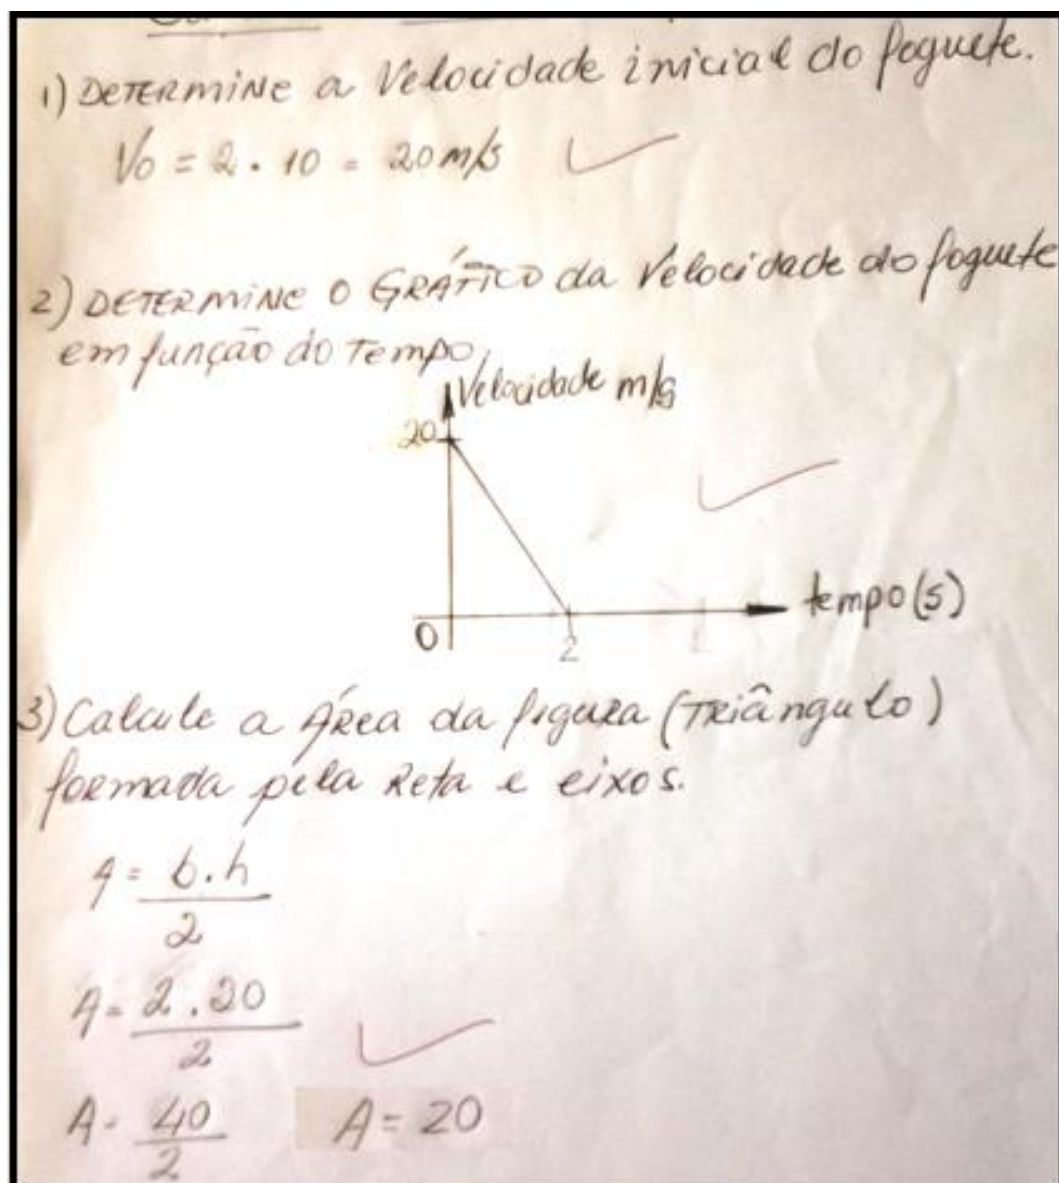 1) DETERMINE a Velocidade inicial do foguete.
Vo = 2 . 10 = 20 m/s
2) DETERMINE O GRÁFICO da Velocidade do foguete
em função do Tempo.
Velocidade m/s
20
tempo (s)
0
2
3) Calcule a ÁRea da figuRa (TRiângulo)
foRmada pela Reta e eixos.
A = b.h
2
A = 2.20
2
A = 40
2
A = 20